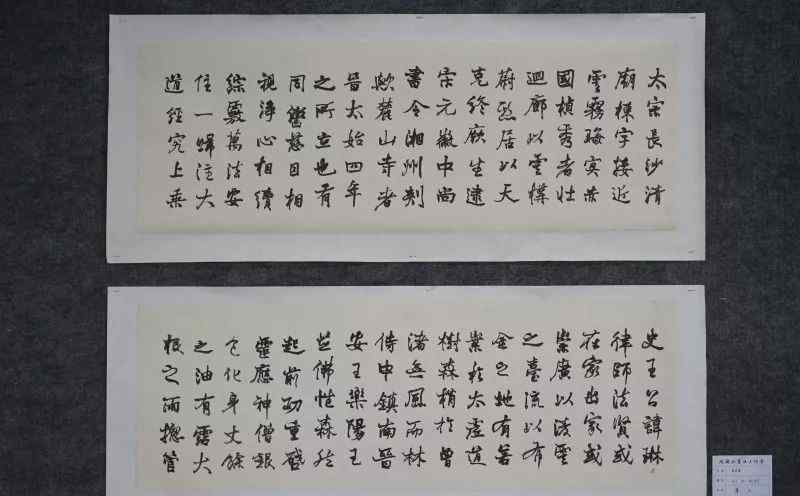 太宗長沙清
廟棟宇接近
雲霧晦冥赤
國楨秀者壯
迴廊以雲構
蔚懸居以天
克終厥生逮
宋元徽中尚
書令湘州刺
歟麓山寺者
晉太始四年
之所立也有
同鑒慈目相
視淨心相續
綜覈萬法安
住一歸注大
道經究上乘
史王公諱琳
律師法賢或
在家出家或
崇廣以凌雲
之臺流以布
金之地有若
業於太虛道
樹森梢於曾
渚無風而林
侍中鎮南晉
安王樂陽王
並佛性森然
起前功重啟
靈應神僧銀
色化身丈餘
之油有露大
根之而摠管